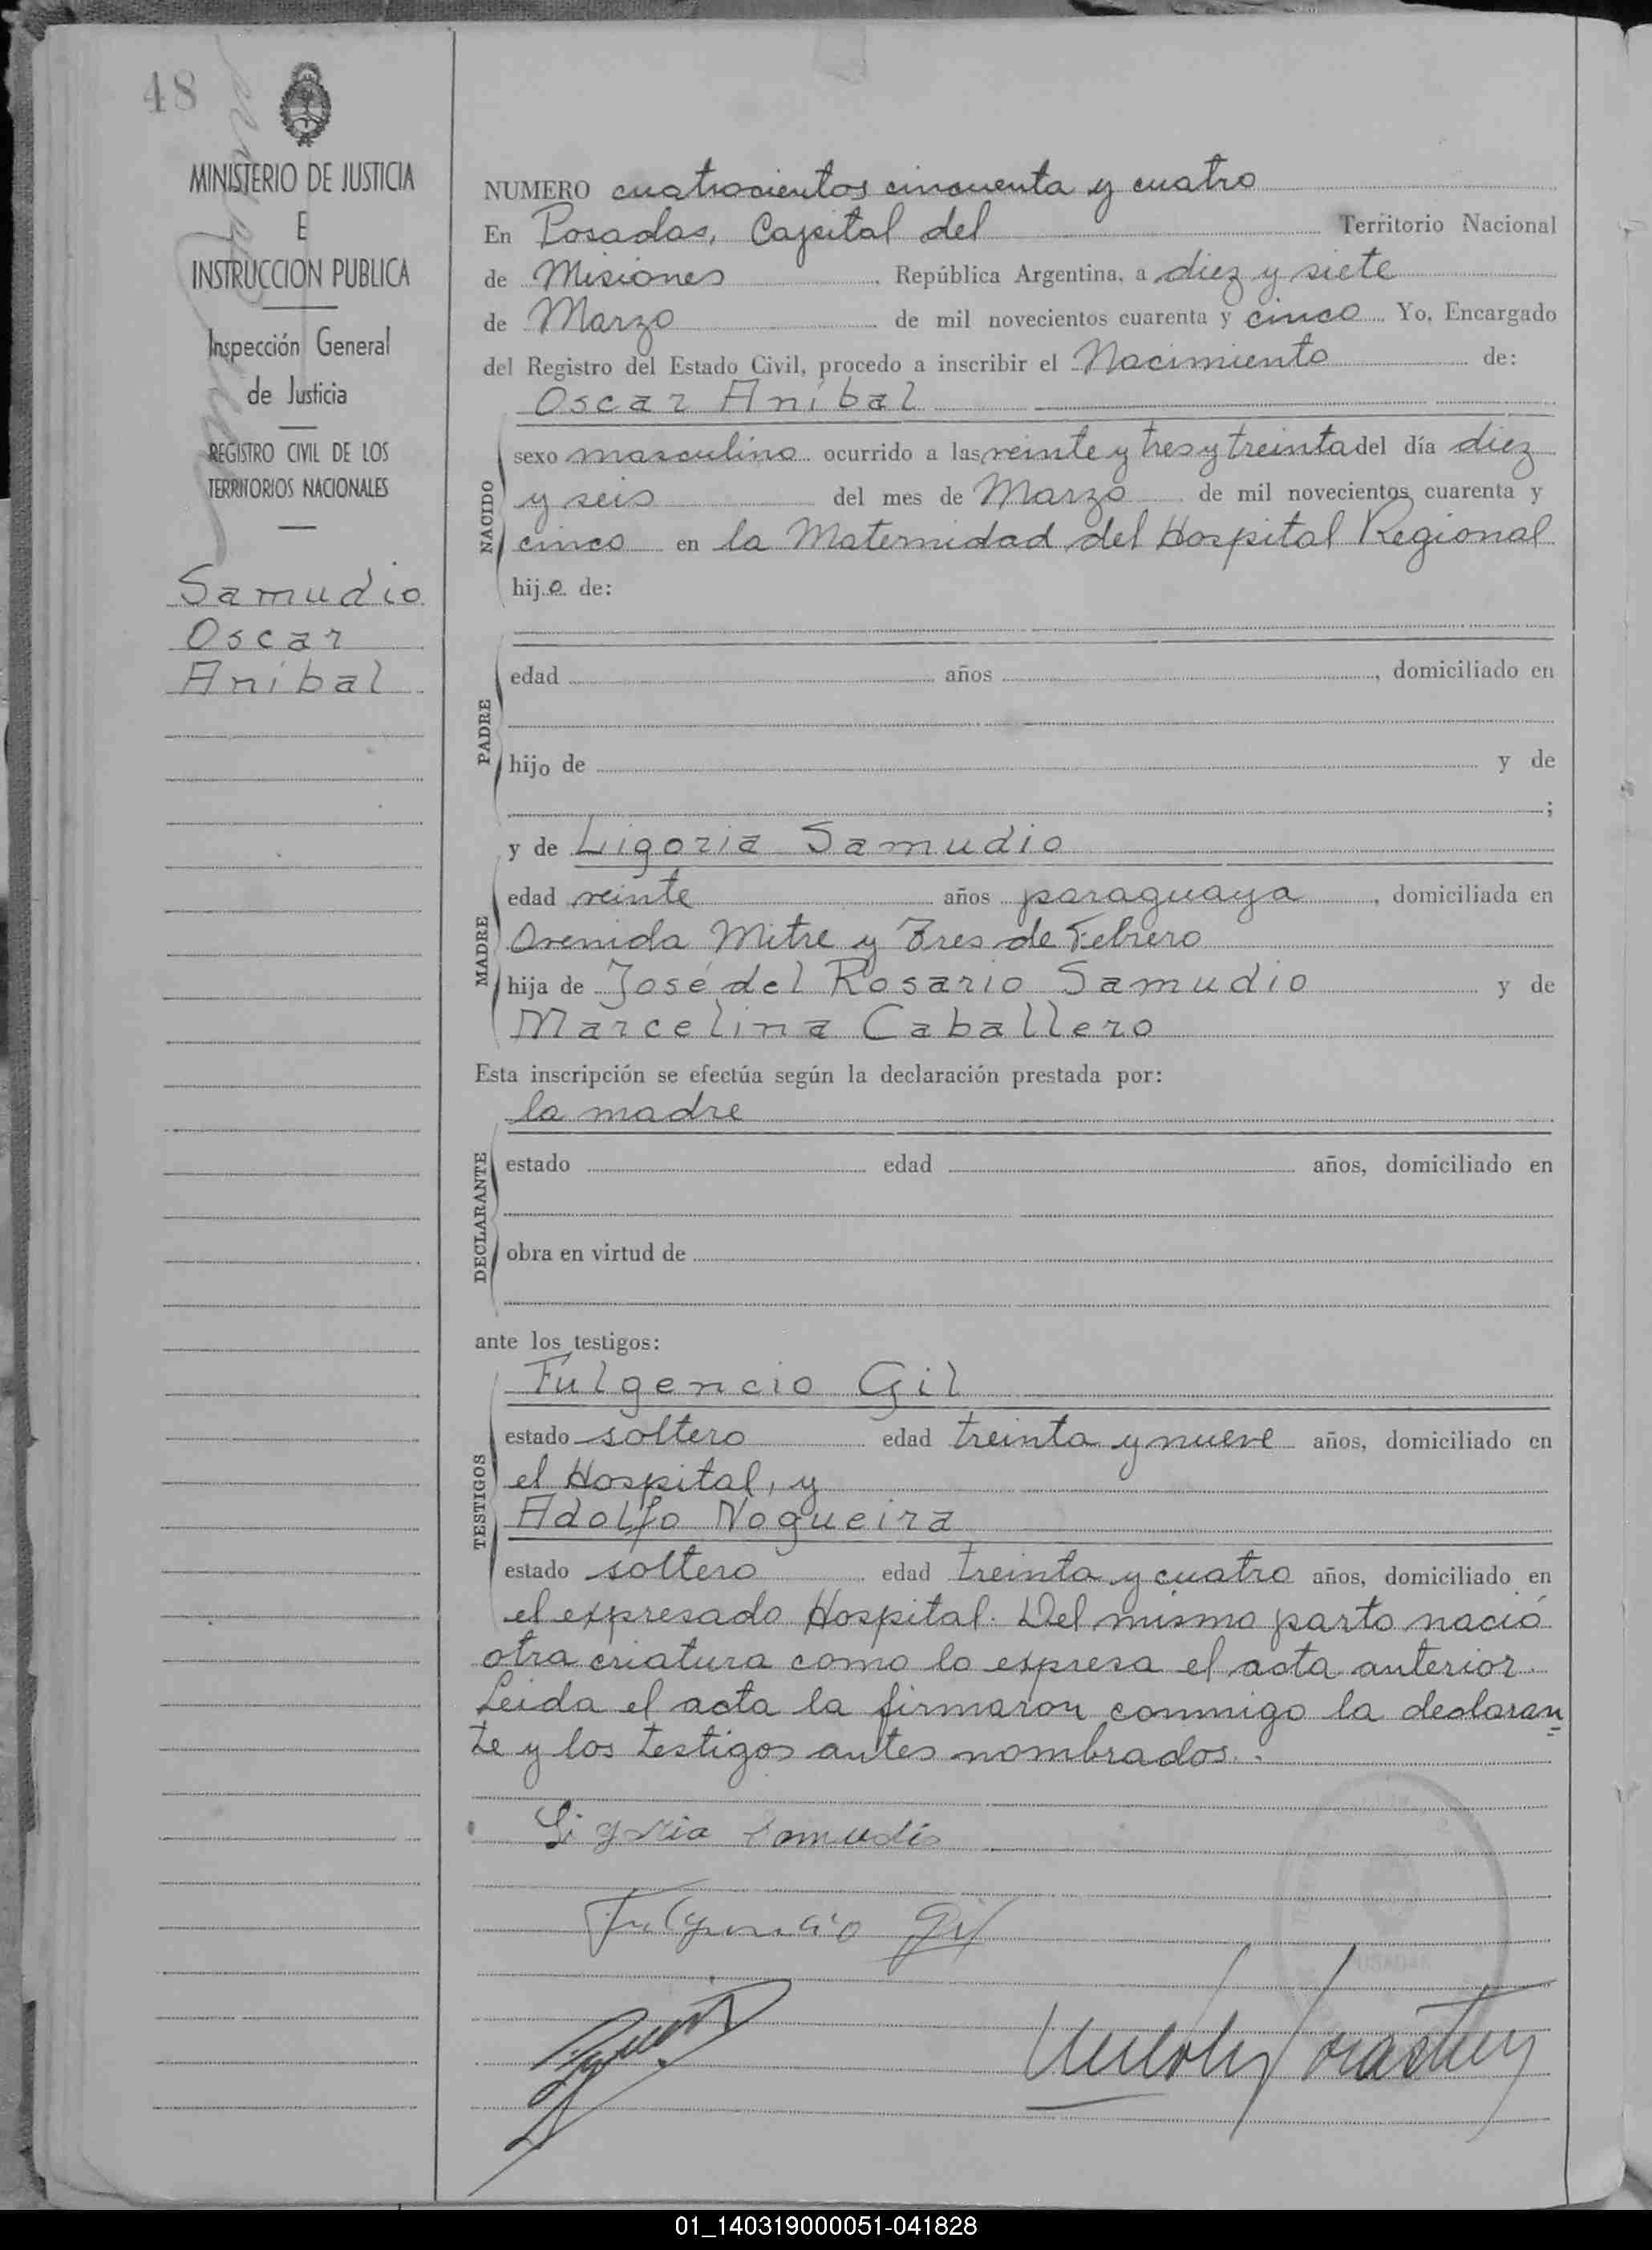 48
MINISTERIO DE JUSTICIA
E
INSTRUCCION PUBLICA
Inspección General
de Justicia
REGISTRO CIVIL DE LOS
TERRITORIOS NACIONALES
Samudio
Oscar
Aníbal
NUMERO cuatrocientos cincuenta y cuatro
En Posadas, Capital del Territorio Nacional
de Misiones, República Argentina, a diez y siete
de Marzo de mil novecientos cuarenta y cinco Yo, Encargado
del Registro del Estado Civil, procedo a inscribir el Nacimiento de:
Oscar Aníbal
NACIDO
sexo masculino ocurrido a las veinte y tres y treinta del día diez
y seis del mes de Marzo de mil novecientos cuarenta y
cinco en la Maternidad del Hospital Regional
hijo de:
PADRE
edad años , domiciliado en
hijo de y de
;
MADRE
y de Ligoria Samudio
edad veinte años paraguaya, domiciliada en
Avenida Mitre y Tres de Febrero
hija de José del Rosario Samudio y de
Marcelina Caballero
Esta inscripción se efectúa según la declaración prestada por:
la madre
DECLARANTE
estado edad años, domiciliado en
obra en virtud de
ante los testigos:
TESTIGOS
Fulgencio Gil
estado soltero edad treinta y nueve años, domiciliado en
el Hospital, y
Adolfo Nogueira
estado soltero edad treinta y cuatro años, domiciliado en
el expresado Hospital. Del mismo parto nació
otra criatura como lo expresa el acta anterior.
Leida el acta la firmaron conmigo la declaran
te y los testigos antes nombrados.
Ligoria Samudio
Fulgencio Gil
POSADAS
01_140319000051-041828